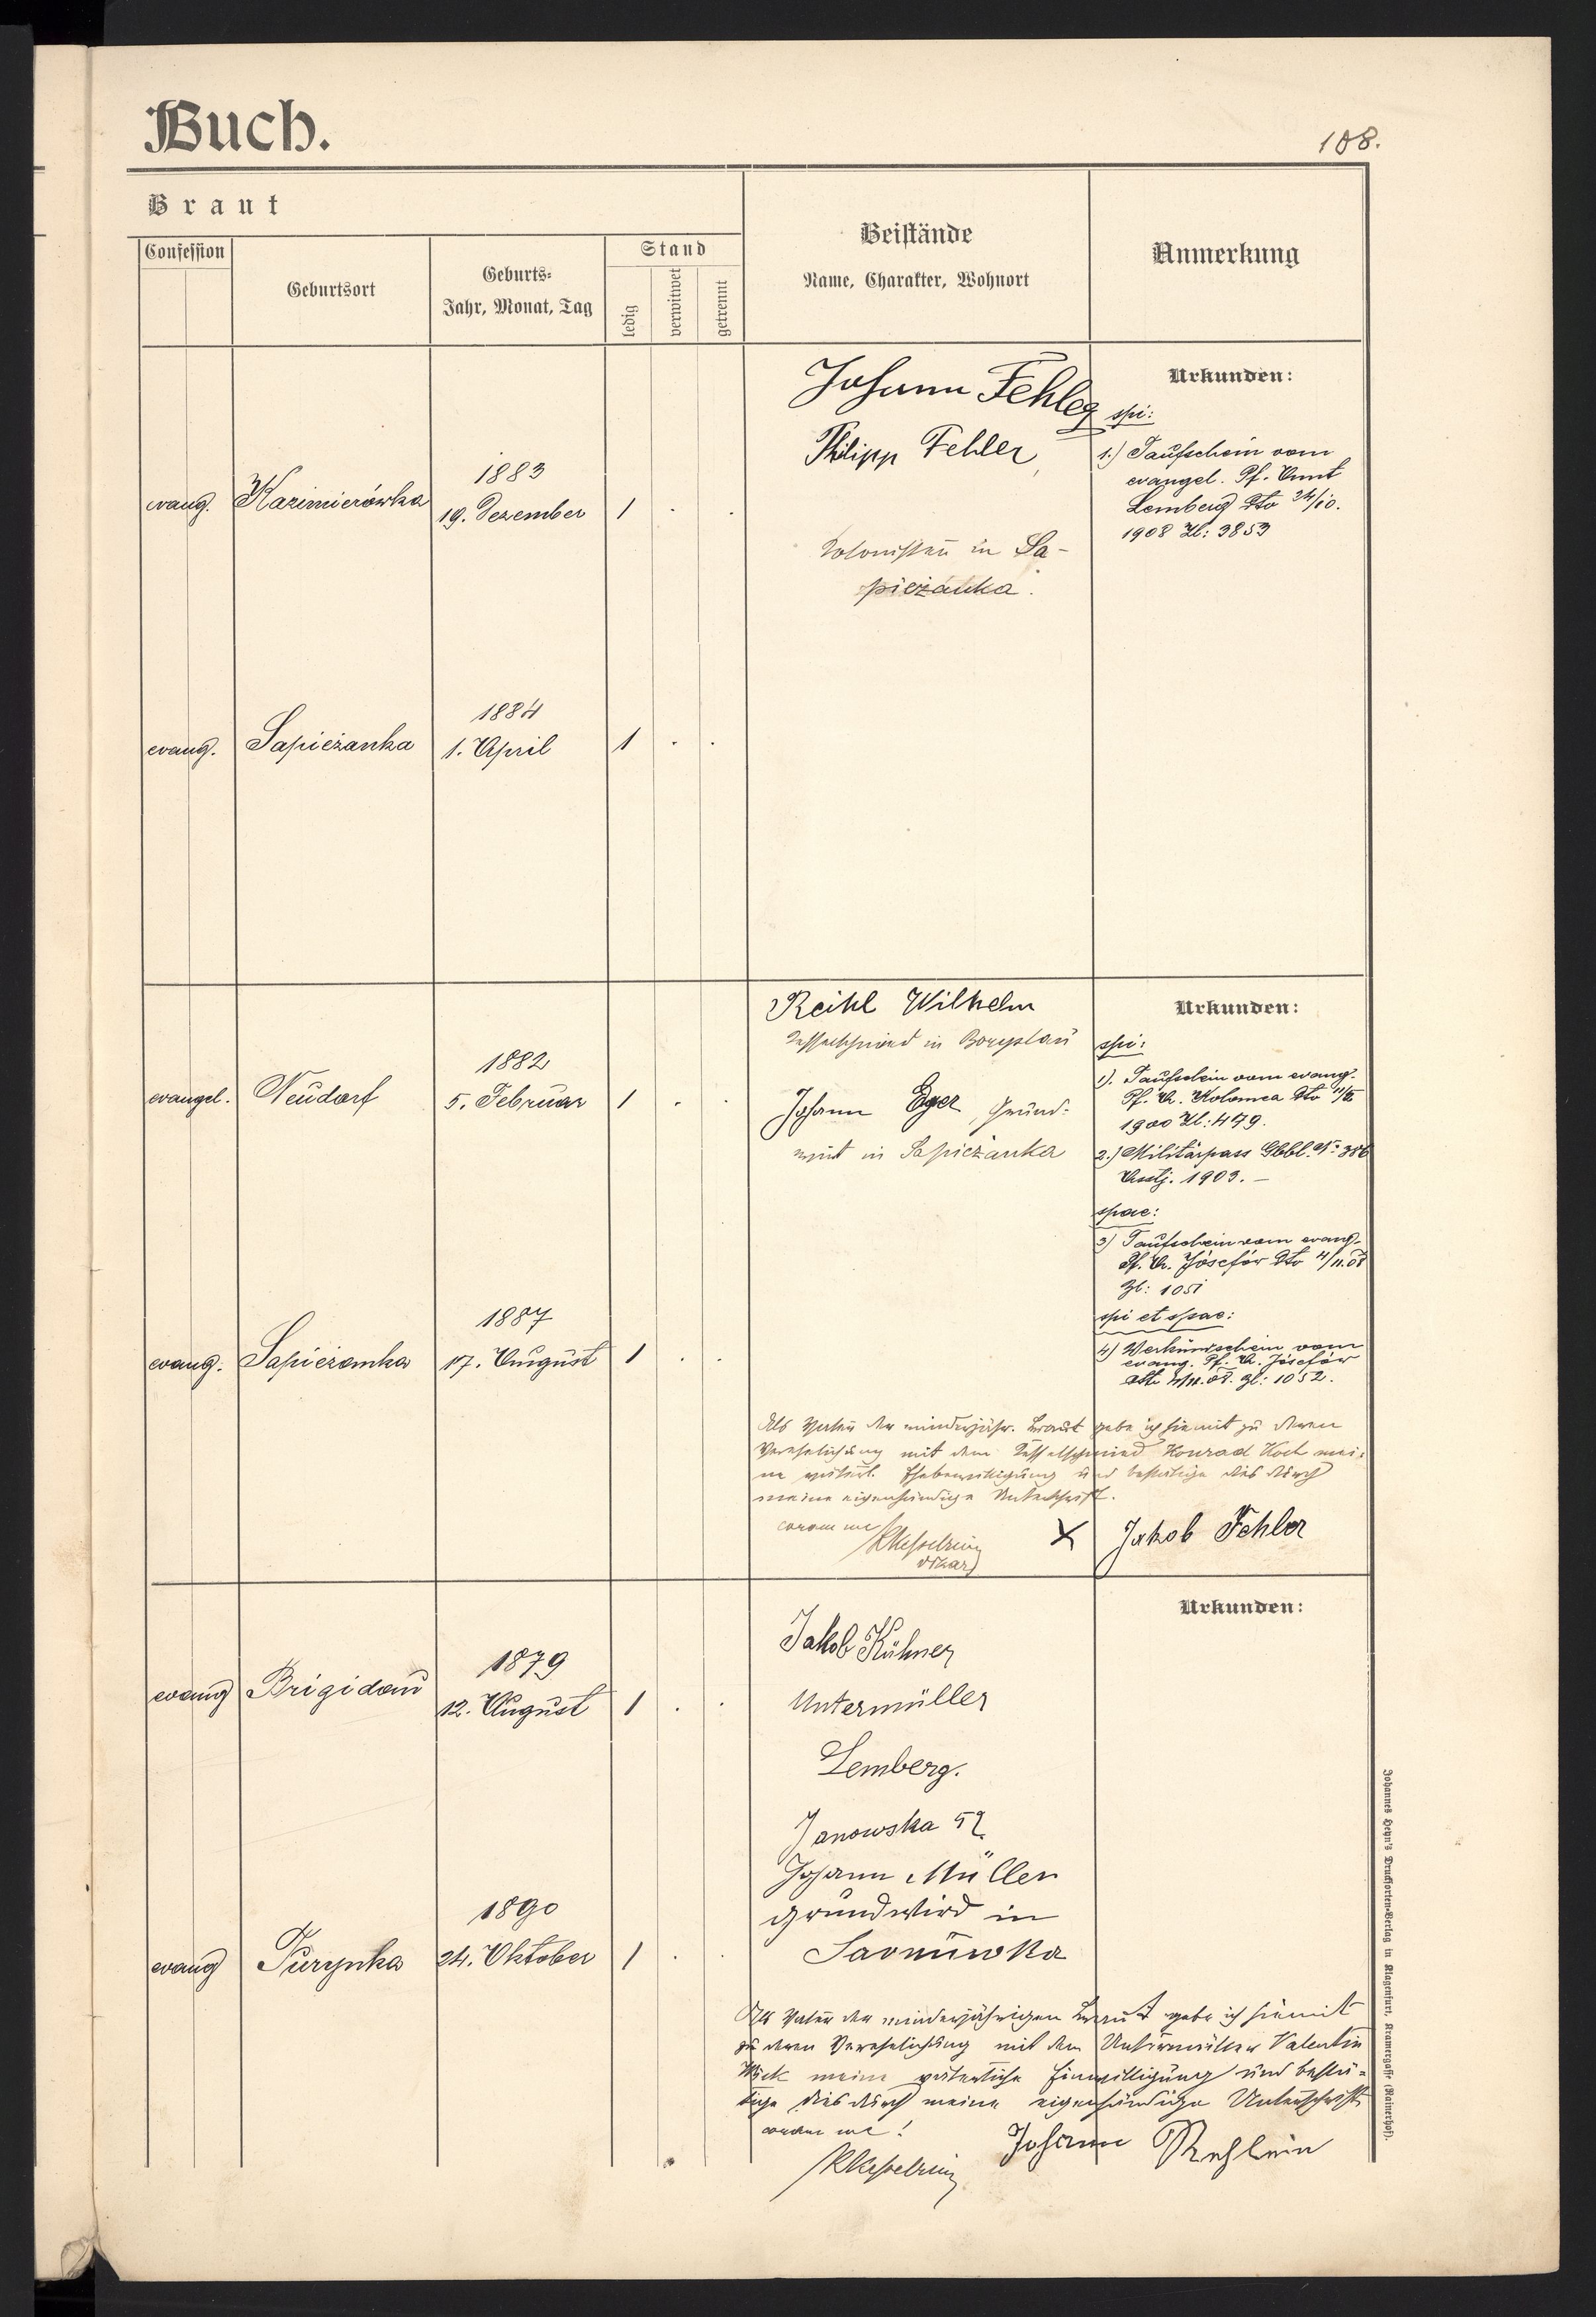 Buch.
108.
Braut
Confession
Geburtsort
Geburts-
Jahr, Monat, Tag
Stand
ledig
verwitwet
getrennt
Beistände
Name, Charakter, Wohnort
Anmerkung
evang. Kazimierówka
1883
19. Dezember 1 . .
Johann Fehler
Philipp Fehler
Kolonisten in Sa-
pieżanka.
Urkunden:
spi:
1.) Taufschein vom
evangel. Pf. Amt
Lemberg dto 24/10.
1908 Zl: 3853
evang. Sapieżanka
1884
1. April 1 . .
evangel. Neudorf
1882
5. Februar 1 . .
Reihl Wilhelm
Kesselschmied in
Johann Eger, Grund-
wirt in Sapieżanka
Urkunden:
spi:
1). Taufschein vom evang.
Pf. A. Kolomea dto
1900 Zl: 479.
2.) Militärpass Gbbl. No 386
Asstj. 1903. —
spae:
3) Taufschein vom evang.
Pf. A. Józefów dto 4/11.08
Zl: 1051
spi et spae:
4) Verkündschein vom
evang. Pf. A. Józefów
dto 08. Zl: 1052.
evang. Sapieżanka
1887
17. August 1 . .
Als Vater der minderjähr. Braut gebe ich hiemit zu deren
Verehelichung mit dem Kesselschmied Konrad Koch mei-
ne väterl. Ehebewilligung und bestätige dies durch
meine eigenhändige Unterschrift.
coram me
RKesselring
Vikar
X Jakob Fehler
evang Brigidau
1879
12. August 1 . .
Jakob Kühner
Untermüller
Lemberg.
Janowska 52
Johann Müller
grundwird in
Sarnuwka
Urkunden:
evang Turynka
1890
24. Oktober 1 . .
Als Vater der minderjährigen Braut gebe ich hiemit
zu deren Verehelichung mit dem Untermüller Valentin
meine väterliche Einwilligung und bestä-
tige dies durch meine eigenhändige Unterschrift
coram me!
RKesselring
Johann
Johannes Heyn's Drucksorten-Verlag in Klagenfurt, Kramergasse (Rainerhof).